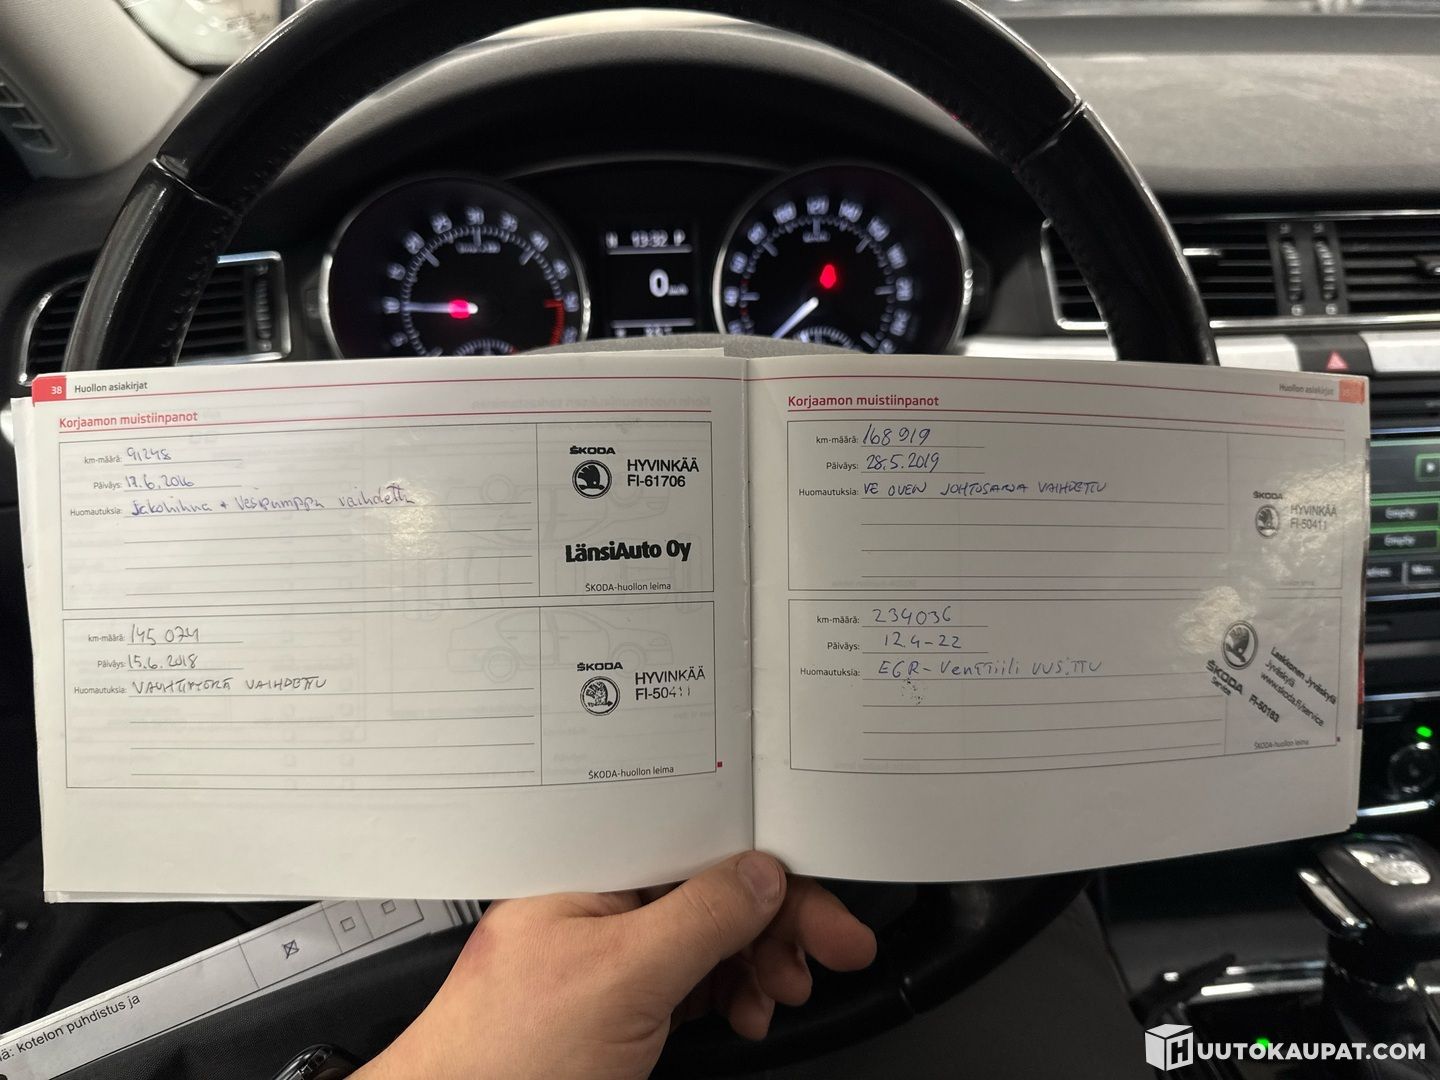 38 Huollon asiakirjat
Korjaamon muistiinpanot
km-määrä: 91248
Päiväys: 17.6.2016
Huomautuksia: Jakohihna + Vesipumppu vaihdettu
ŠKODA
HYVINKÄÄ
FI-61706
LänsiAuto Oy
ŠKODA-huollon leima
km-määrä: 145 074
Päiväys: 15.6.2018
Huomautuksia: VAUHTIPYÖRÄ VAIHDETTU
ŠKODA
HYVINKÄÄ
FI-50411
ŠKODA-huollon leima
Huollon asiakirjat
Korjaamon muistiinpanot
km-määrä: 168 919
Päiväys: 28.5.2019
Huomautuksia: VE OVEN JOHTOSARJA VAIHDETTU
ŠKODA
HYVINKÄÄ
FI-50411
km-määrä: 234036
Päiväys: 12.4-22
Huomautuksia: EGR-Venttiili UUSITTU
Laakkonen Jyväskylä
Jyväskylä
www.skoda.fi/service
ŠKODA FI-50183
Service
ŠKODA-huollon leima
13:32 P
0
kotelon puhdistus ja
HUUTOKAUPAT.COM